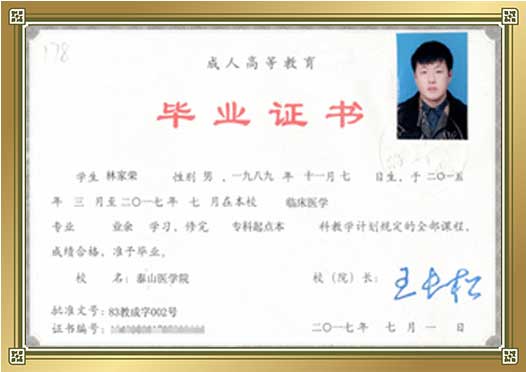 178
成人高等教育
毕业证书
学生 林家荣 性别 男 ,一九八九 年 十一月 七 日生,于 二〇一五
年 三 月至 二〇一七年 七 月在本校 临床医学
专业 业余 学习,修完 专科起点本 科教学计划规定的全部课程,
成绩合格,准予毕业。
校 名:泰山医学院 校(院)长:
批准文号:83教成字002号
证书编号:
二〇一七年 七 月 一 日